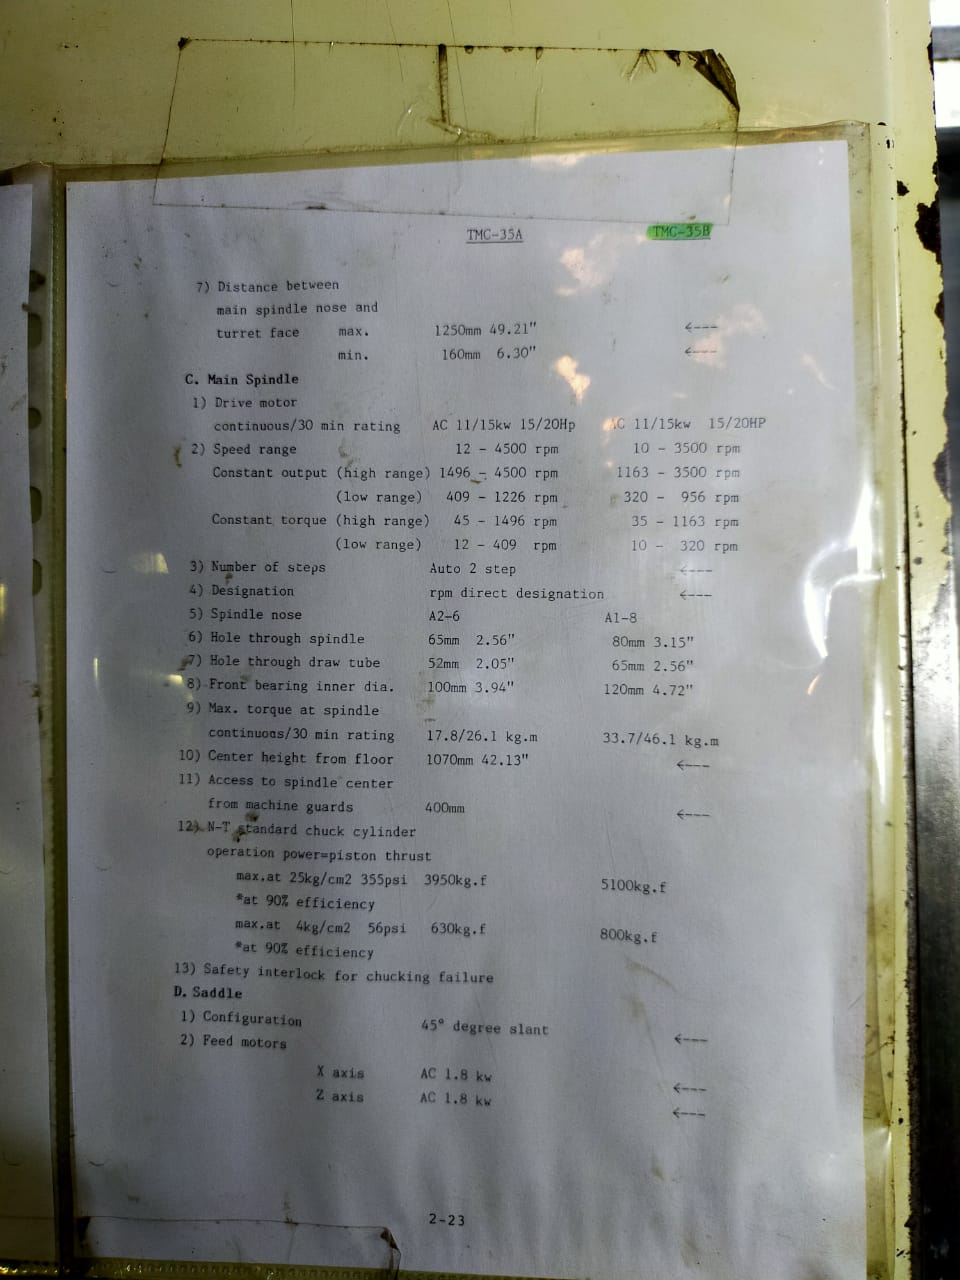 TMC-35A TMC-35B
7) Distance between
main spindle nose and
turret face max. 1250mm 49.21" <---
min. 160mm 6.30" <---
C. Main Spindle
1) Drive motor
continuous/30 min rating AC 11/15kw 15/20Hp AC 11/15kw 15/20HP
2) Speed range 12 - 4500 rpm 10 - 3500 rpm
Constant output (high range) 1496 - 4500 rpm 1163 - 3500 rpm
(low range) 409 - 1226 rpm 320 - 956 rpm
Constant torque (high range) 45 - 1496 rpm 35 - 1163 rpm
(low range) 12 - 409 rpm 10 - 320 rpm
3) Number of steps Auto 2 step <---
4) Designation rpm direct designation <---
5) Spindle nose A2-6 A1-8
6) Hole through spindle 65mm 2.56" 80mm 3.15"
7) Hole through draw tube 52mm 2.05" 65mm 2.56"
8) Front bearing inner dia. 100mm 3.94" 120mm 4.72"
9) Max. torque at spindle
continuous/30 min rating 17.8/26.1 kg.m 33.7/46.1 kg.m
10) Center height from floor 1070mm 42.13" <---
11) Access to spindle center
from machine guards 400mm <---
12) N-T standard chuck cylinder
operation power=piston thrust
max.at 25kg/cm2 355psi 3950kg.f 5100kg.f
*at 90% efficiency
max.at 4kg/cm2 56psi 630kg.f 800kg.f
*at 90% efficiency
13) Safety interlock for chucking failure
D. Saddle
1) Configuration 45° degree slant <---
2) Feed motors
X axis AC 1.8 kw <---
Z axis AC 1.8 kw <---
2-23